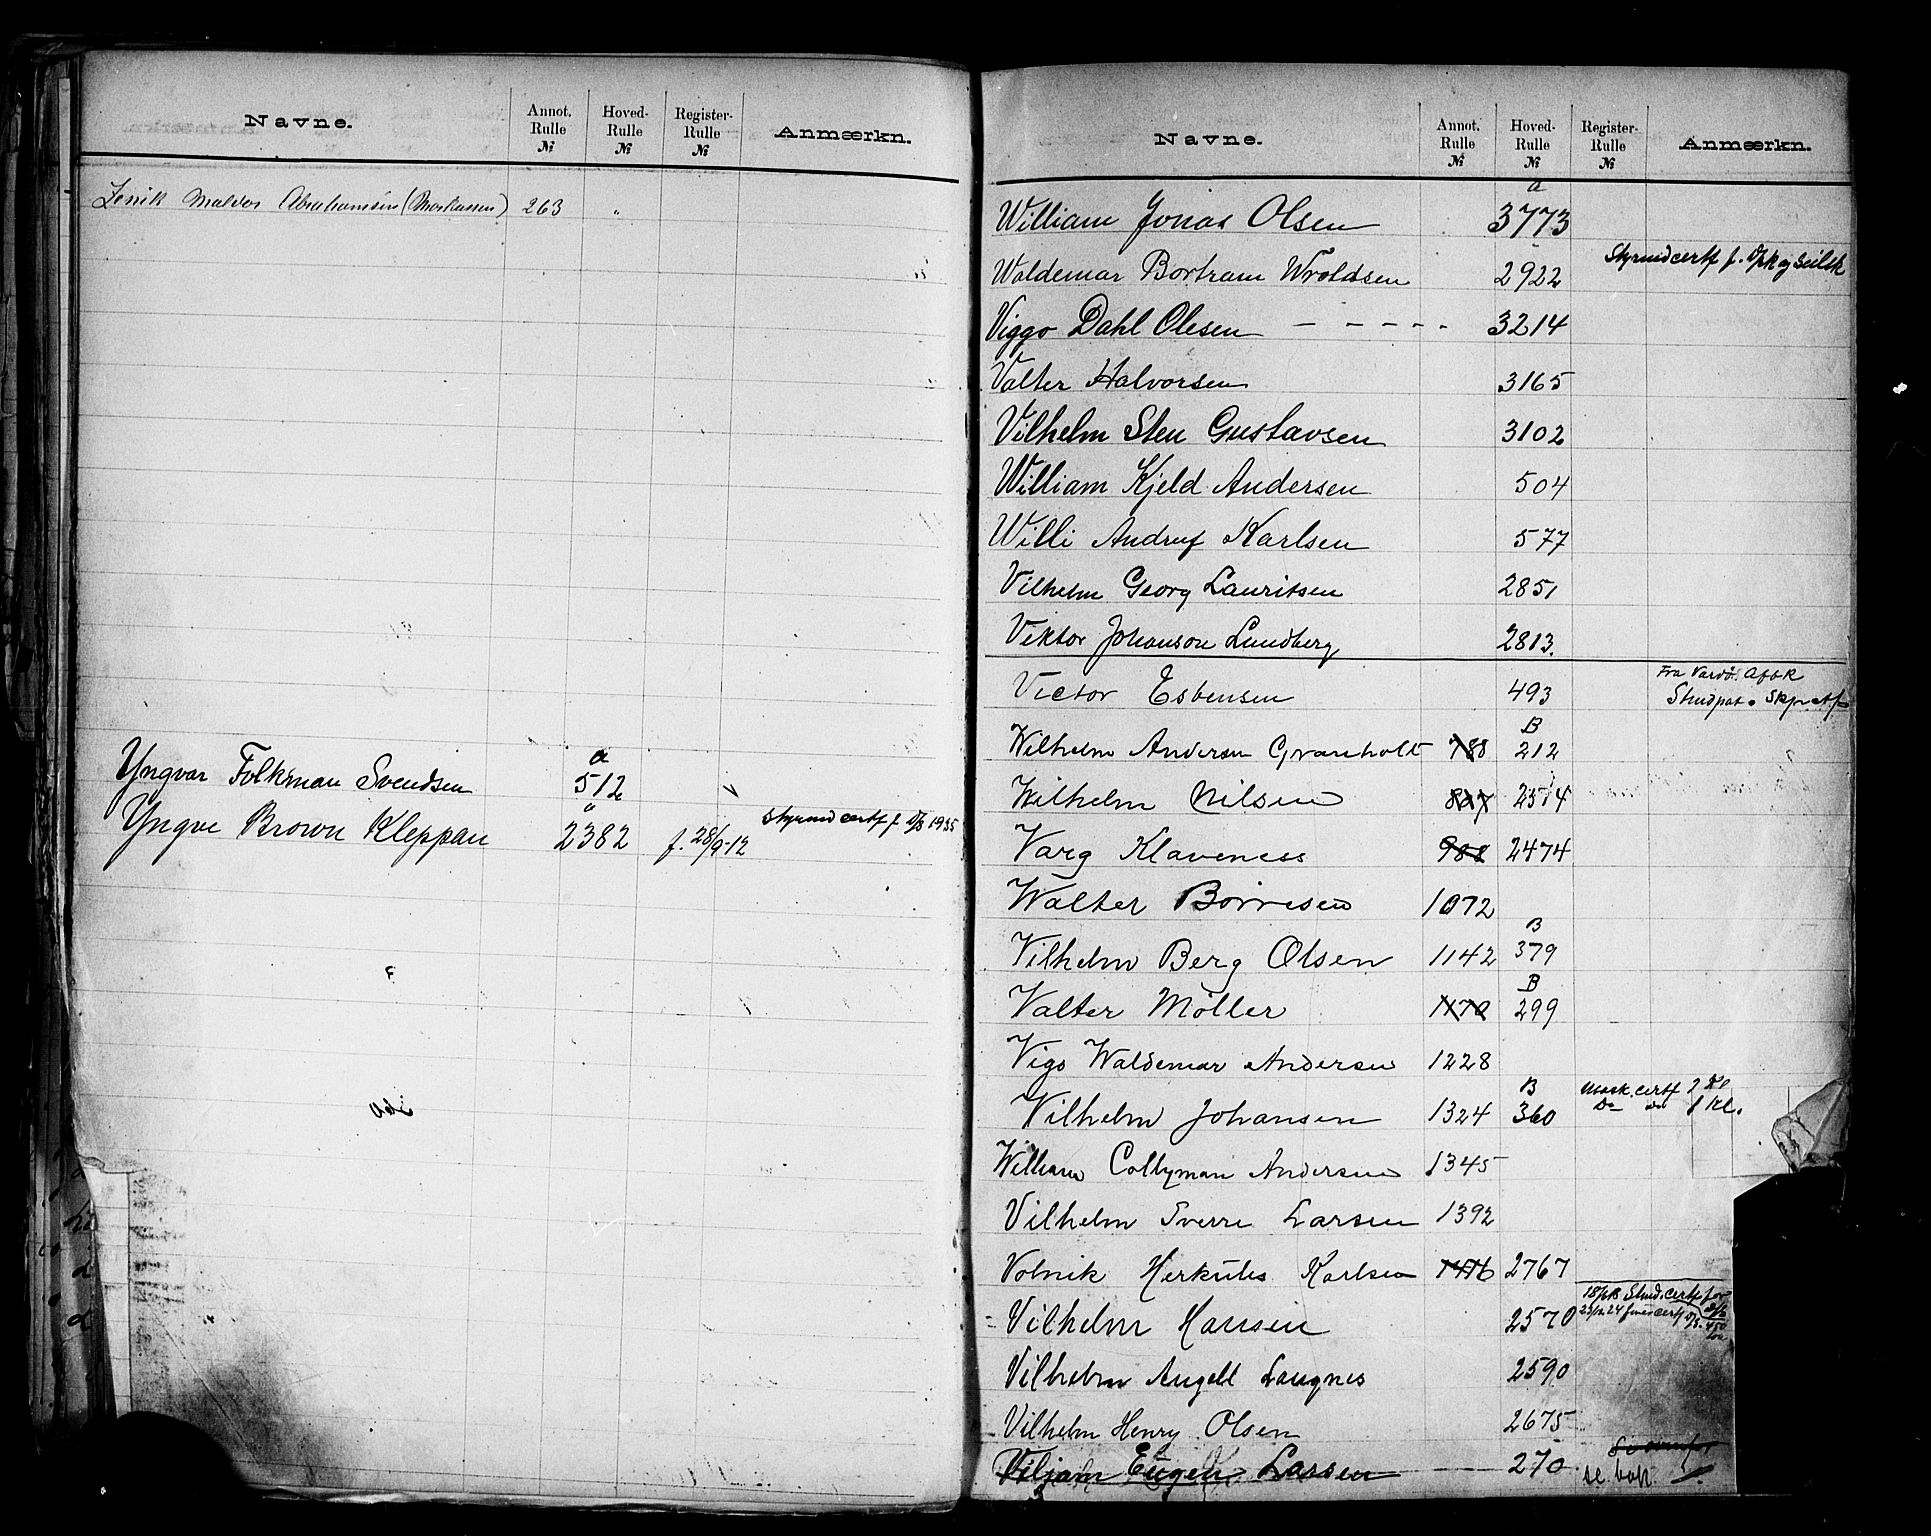 Navne. Annot. Rulle № Hoved- Rulle № Register- Rulle № Anmærkn.
Abrahamsen 263 "
a
Yngvar Folkman Svendsen 512
"
Yngve Brown Kleppan 2382 f. 28/9-12 Styrmd certf f 1935
Navne. Annot. Rulle № Hoved- Rulle № Register- Rulle № Anmærkn.
a
William Jonas Olsen 3773
Waldemar Bertram Wroldsen 2922 Styrmd certf f.
Viggo Dahl Olesen - - - - - 3214
Valter Halvorsen 3165
Vilhelm Sten Gustavsen 3102
William Kjeld Andersen 504
Willi Andreas Karlsen 577
Vilhelm Georg Lauritsen 2851
Viktor Johanson Lundberg 2813.
Victor Esbensen 493 Fra Vardø.
B
Wilhelm Andersen Granholt 788 212
Wilhelm Nilsen 2514
Varg Klaveness 988 2474
Walter Børresen 1072
B
Vilhelm Berg Olsen 1142 379
B
Valter Møller 1170 299
Vigo Waldemar Andersen 1228
B
Vilhelm Johansen 1324 360 Mask. certf 2 Kl
Do do 1 Kl.
William Collyman Andersen 1345
Vilhelm Sverre Larsen 1392
Volnik Herkules Karlsen 1476 2767
Vilhelm Hansen 2570
Vilhelm Angell Langnes 2590
Vilhelm Henry Olsen 2675
Viljam Eugen Larsen 270